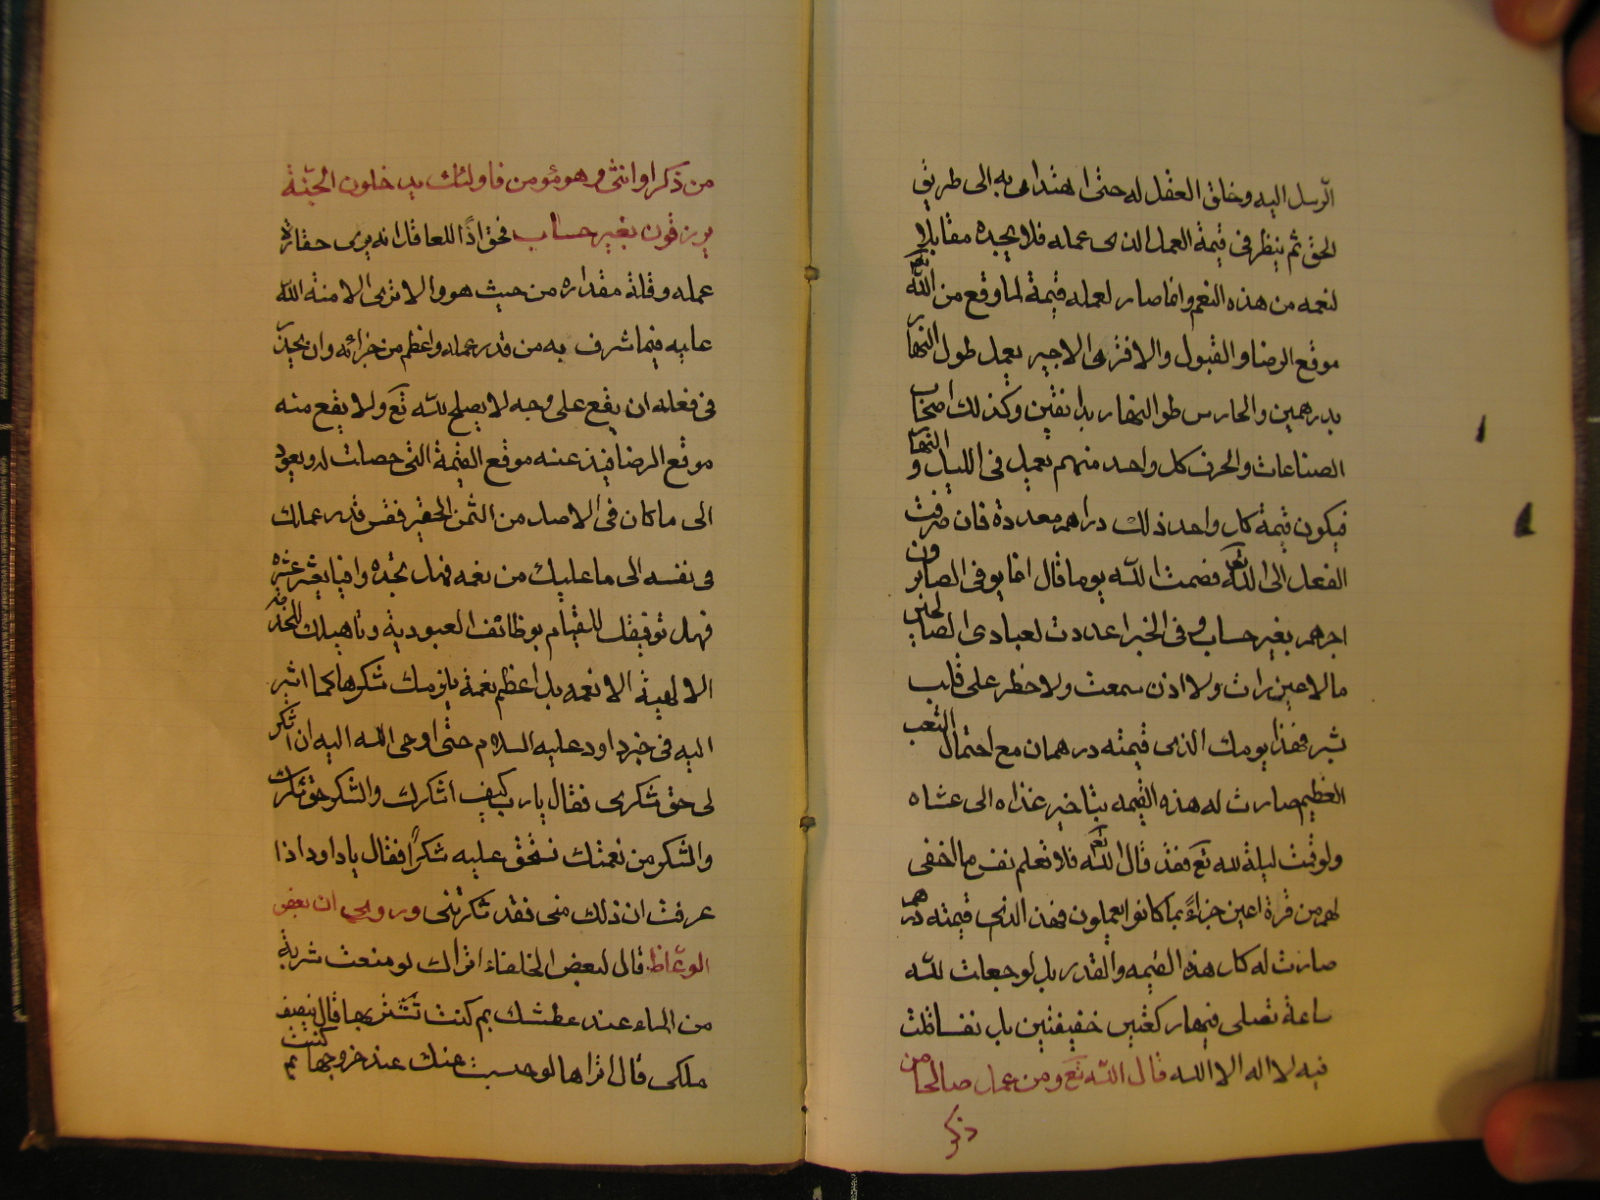 الرّسل اليه وخلق العقل له حتى اهتدى به الى طريق
الحق ثم ينظر فى قيمة العمل الذى عمله فلا يجده مقابلا
لنعمه من هذه النعم وانما صار لعمله قيمة لما وقع من اللّه تعالى
موقع الرضا والقبول والا فترى الاجير يعمل طول النهار
بدرهمين والحارس طول النهار بدانقين وكذلك اصحاب
الصناعات والحرف كل واحد منهم يعمل فى الليل والنهار
فيكون قيمة كل واحد ذلك دراهم معدودة فان صرفت
الفعل الى اللّه تعالى فصمت للّه يوما قال انما يوفى الصابرون
اجرهم بغير حساب وفى الخبر اعددت لعبادى الصالحين
ما لا عين رات ولا اذن سمعت ولا خطر على قلب
بشر فهذا يومك الذى قيمته درهمان مع احتمال التعب
العظيم صارت له هذه القيمه بتاخير غذاه الى عشاه
ولو قمت ليلة لله تع فقد قال اللّه تعالى فلا تعلم نفس ما اخفى
لهم من قرة اعين جزاءً بما كانوا يعملون فهذا الذى قيمته درهم
صارت له كل هذه القيمه والقدر بل لو جعلت للّه
ساعة تصلى فيها ركعتين خفيفتين بل نفسا قلت
فيه لا اله الا الله قال اللّه تع ومن عمل صالحا من
ذكر
من ذكر او انثى وهو مؤمن فاولئك يدخلون الجنّة
يرزقون بغير حساب فحق اذًا للعاقل انه يرى حقارة
عمله وقلة مقداره من حيث هو والا ترى الا منة اللّه
عليه فيما شرف به من قدر عمله واعظم من جزائه وان يحذر
فى فعله ان يقع على وجه لا يصلح للّه تع ولا يقع منه
موقع الرضا فيذ عنه موقع القيمة التى حصلت له ويعود
الى ما كان فى الاصل من الثمن الحقير فقس قدر عملك
فى نفسه الى ما عليك من نعمه فهل تجده وافيا بعشر عشره
فهل توفيقك للقيام بوظائف العبودية وتاهيلك للخدمة
الالهية الا نعمه بل اعظم نعمة يلزمك شكرها كما اشير
اليه فى خبر داود عليه السلام حتى اوحى الله اليه ان اشكر
لى حق شكرى فقال يارب كيف اشكرك والشكر حق شكرك
والشكر من نعمتك تستحق عليه شكراً فقال يا داود اذا
عرفت ان ذلك منى فقد شكرتنى وروى ان بعض
الوعّاظ قال لبعض الخلفاء اتراك لو منعت شربة
من الماء عند عطشك بم كنت تشتريها قال بنصف
ملكى قال اتراها لو حبست عنك عند خروجها بم كنت